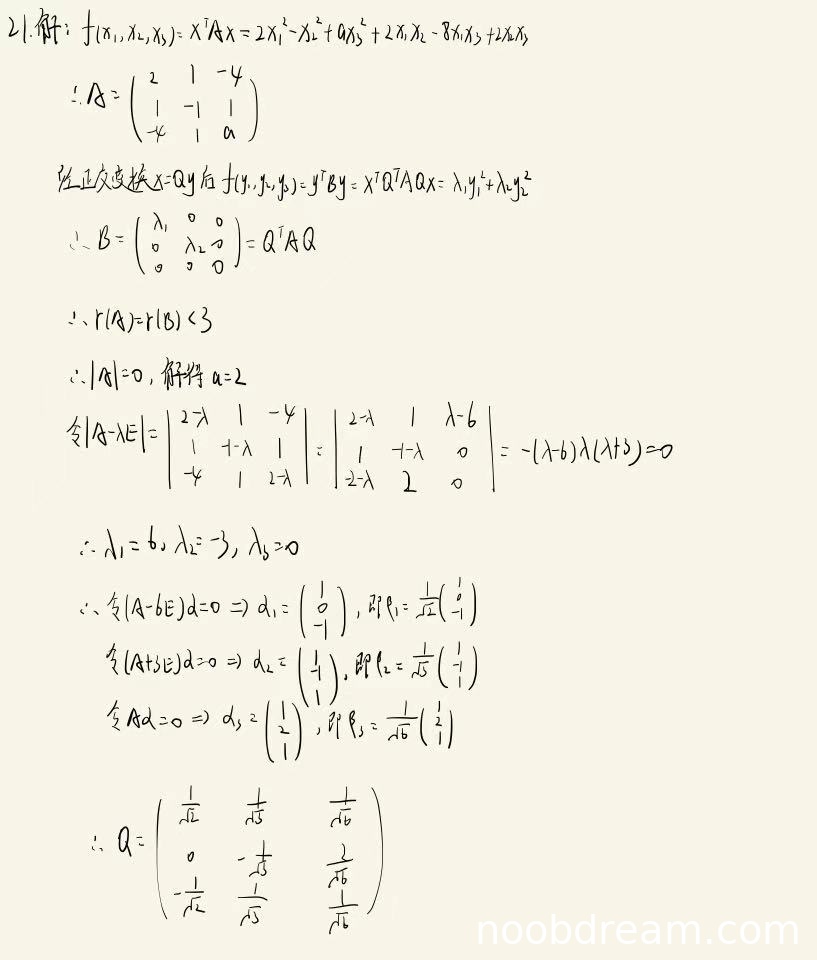 21.解: f(x₁,x₂,x₃)=xᵀAx=2x₁²-x₂²+ax₃²+2x₁x₂-8x₁x₃+2x₂x₃
∴A=(2 1 -4; 1 -1 1; -4 1 a)
经正交变换x=Qy后 f(y₁,y₂,y₃)=yᵀBy=xᵀQᵀAQx=λ₁y₁²+λ₂y₂²
∴B=(λ₁ 0 0; 0 λ₂ 0; 0 0 0)=QᵀAQ
∴r(A)=r(B)<3
∴|A|=0,解得a=2
令|A-λE|=|2-λ 1 -4; 1 -1-λ 1; -4 1 2-λ|=|2-λ 1 λ-6; 1 -1-λ 0; -2-λ 2 0|=-(λ-6)λ(λ+3)=0
∴λ₁=6,λ₂=-3,λ₃=0
∴令(A-6E)α=0⇒α₁=(1; 0; -1),即β₁=1/√2(1; 0; -1)
令(A+3E)α=0⇒α₂=(1; -1; 1),即β₂=1/√3(1; -1; 1)
令Aα=0⇒α₃=(1; 2; 1),即β₃=1/√6(1; 2; 1)
∴Q=(1/√2 1/√3 1/√6; 0 -1/√3 2/√6; -1/√2 1/√3 1/√6)
noobdream.com